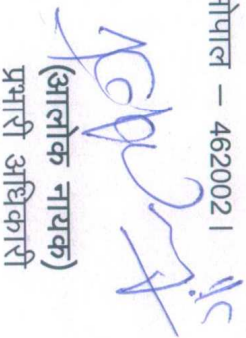 ोपाल – 462002।
(आलोक नायक)
प्रभारी अधिकारी